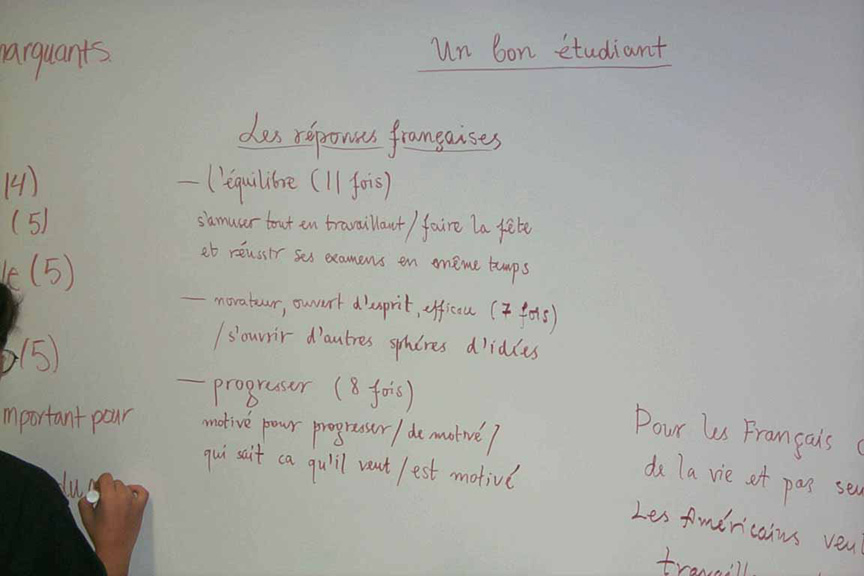 marquants
Un bon étudiant
Les réponses françaises
14)
(5)
le (5)
(5)
mportant pour
du
— l'équilibre (11 fois)
s'amuser tout en travaillant / faire la fête
et réussir ses examens en même temps
— novateur, ouvert d'esprit, efficace (7 fois)
/ s'ouvrir d'autres sphères d'idées
— progresser (8 fois)
motivé pour progresser / de motivé /
qui sait ca qu'il veut / est motivé
Pour les Français
de la vie et pas seu
Les Américains veul
travaill